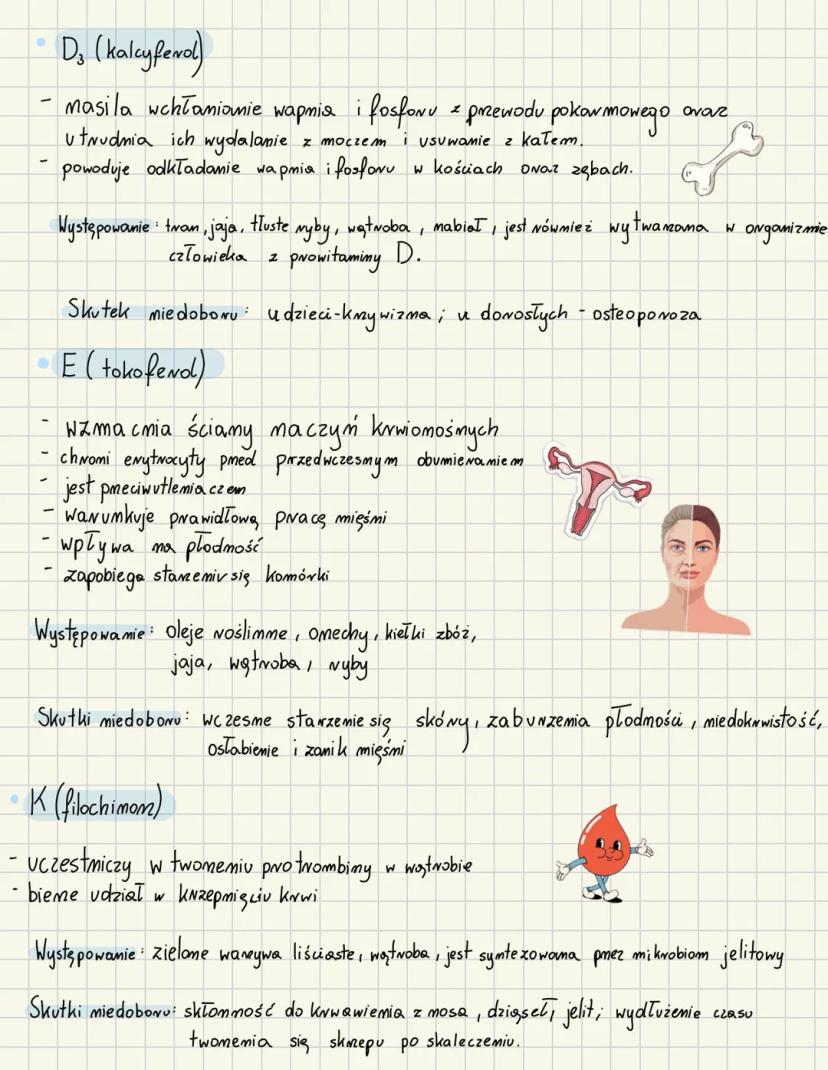 D₃ (kalcyferol)
- nasila wchłanianie wapnia i fosforu z przewodu pokarmowego oraz
utrudnia ich wydalanie z moczem i usuwanie z kałem.
- powoduje odkładanie wapnia i fosforu w kościach oraz zębach.
Występowanie: tran, jaja, tłuste ryby, wątroba, nabiał, jest również wytwarzana w organizmie
człowieka z prowitaminy D.
Skutek niedoboru: u dzieci-krzywizna; u dorosłych - osteoporoza
E (tokoferol)
- wzmacnia ściany naczyń krwionośnych
- chroni erytrocyty przed przedwczesnym obumieraniem
- jest przeciwutleniaczem
- warunkuje prawidłową pracę mięśni
- wpływa na płodność
- zapobiega starzeniu się komórki
Występowanie: oleje roślinne, orzechy, kiełki zbóż,
jaja, wątroba, ryby
Skutki niedoboru: wczesne starzenie się skóry, zaburzenia płodności, niedokrwistość,
osłabienie i zanik mięśni
K (filochinon)
- uczestniczy w tworzeniu protrombiny w wątrobie
- bierze udział w krzepnięciu krwi
Występowanie: zielone warzywa liściaste, wątroba, jest syntezowana przez mikrobiom jelitowy
Skutki niedoboru: skłonność do krwawienia z nosa, dziąseł, jelit; wydłużenie czasu
tworzenia się skrzepu po skaleczeniu.